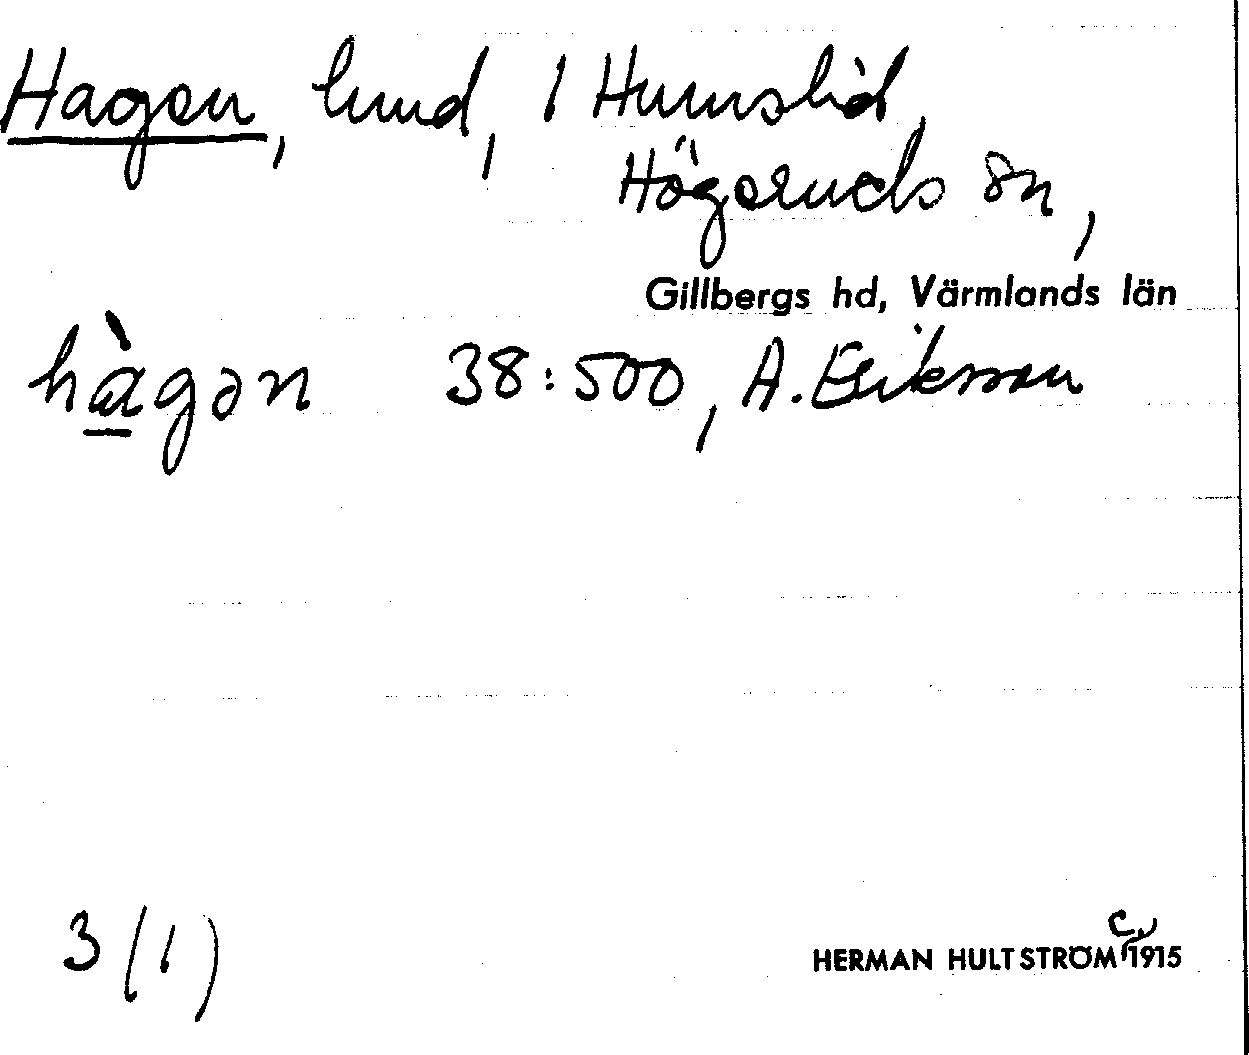 Hagen, lund, 1 Humslid,
Högeruds sn,
Gillbergs hd, Värmlands län
hàgən 38:500, A. Eriksson
3 (1)
HERMAN HULTSTRÖM c. 1915